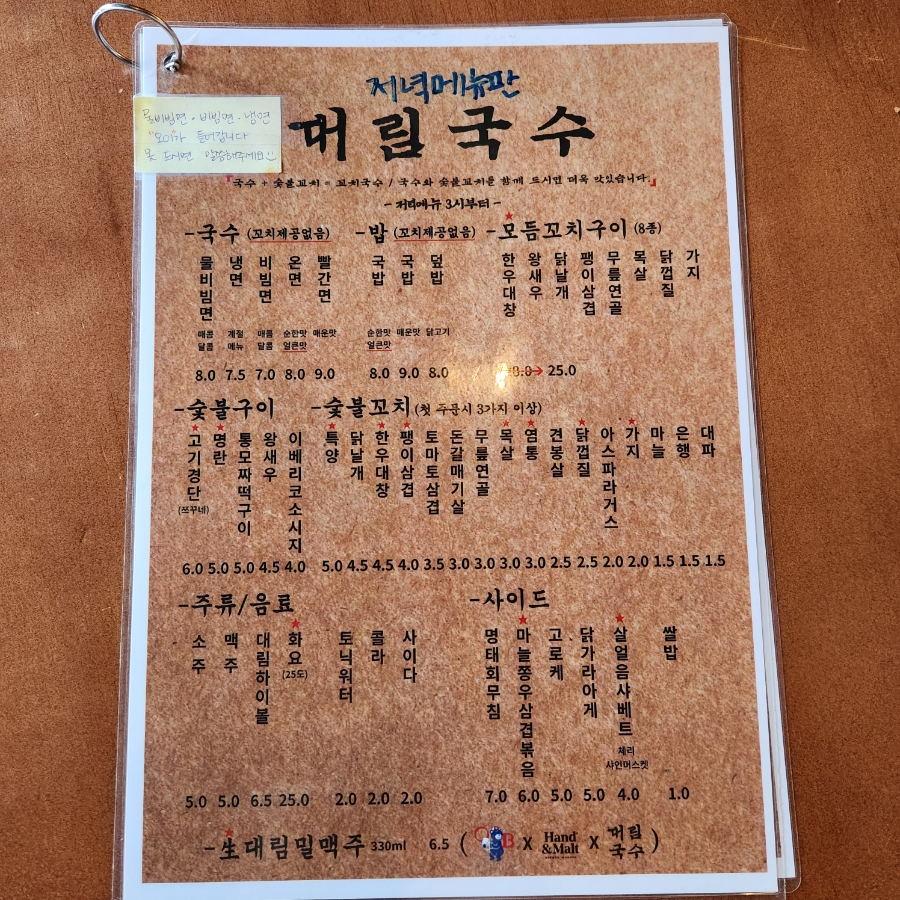 저녁메뉴판
대림국수
물비빔면·비빔면·냉면
"오이"가 들어갑니다
못 드시면 말씀해주세요
『국수 + 숯불꼬치 = 꼬치국수 / 국수와 숯불꼬치를 함께 드시면 더욱 맛있습니다.』
- 저녁메뉴 3시부터 -
-국수 (꼬치제공없음)
물비빔면 냉면 비빔면 온면 빨간면
매콤달콤 계절메뉴 매콤달콤 순한맛얼큰맛 매운맛
8.0 7.5 7.0 8.0 9.0
-밥 (꼬치제공없음)
국밥 국밥 덮밥
순한맛얼큰맛 매운맛 닭고기
8.0 9.0 8.0
-모듬꼬치구이 (8종)
한우대창 왕새우 닭날개 팽이삼겹 무릎연골 목살 닭껍질 가지
→ 25.0
-숯불구이
고기경단(쯔꾸네) 명란 통모짜떡구이 왕새우 이베리코소시지
6.0 5.0 5.0 4.5 4.0
-숯불꼬치 (첫 주문시 3가지 이상)
특양 닭날개 한우대창 팽이삼겹 토마토삼겹 돈갈매기살 무릎연골 목살 염통 견봉살 닭껍질 아스파라거스 가지 마늘 은행 대파
5.0 4.5 4.5 4.0 3.5 3.0 3.0 3.0 3.0 2.5 2.5 2.0 2.0 1.5 1.5 1.5
-주류/음료
소주 맥주 대림하이볼 화요(25도) 토닉워터 콜라 사이다
5.0 5.0 6.5 25.0 2.0 2.0 2.0
-사이드
명태회무침 마늘쫑우삼겹볶음 고로케 닭가라아게 살얼음샤베트 쌀밥
체리
샤인머스켓
7.0 6.0 5.0 5.0 4.0 1.0
-生대림밀맥주 330ml 6.5 ( OB X Hand &Malt X 대림국수 )